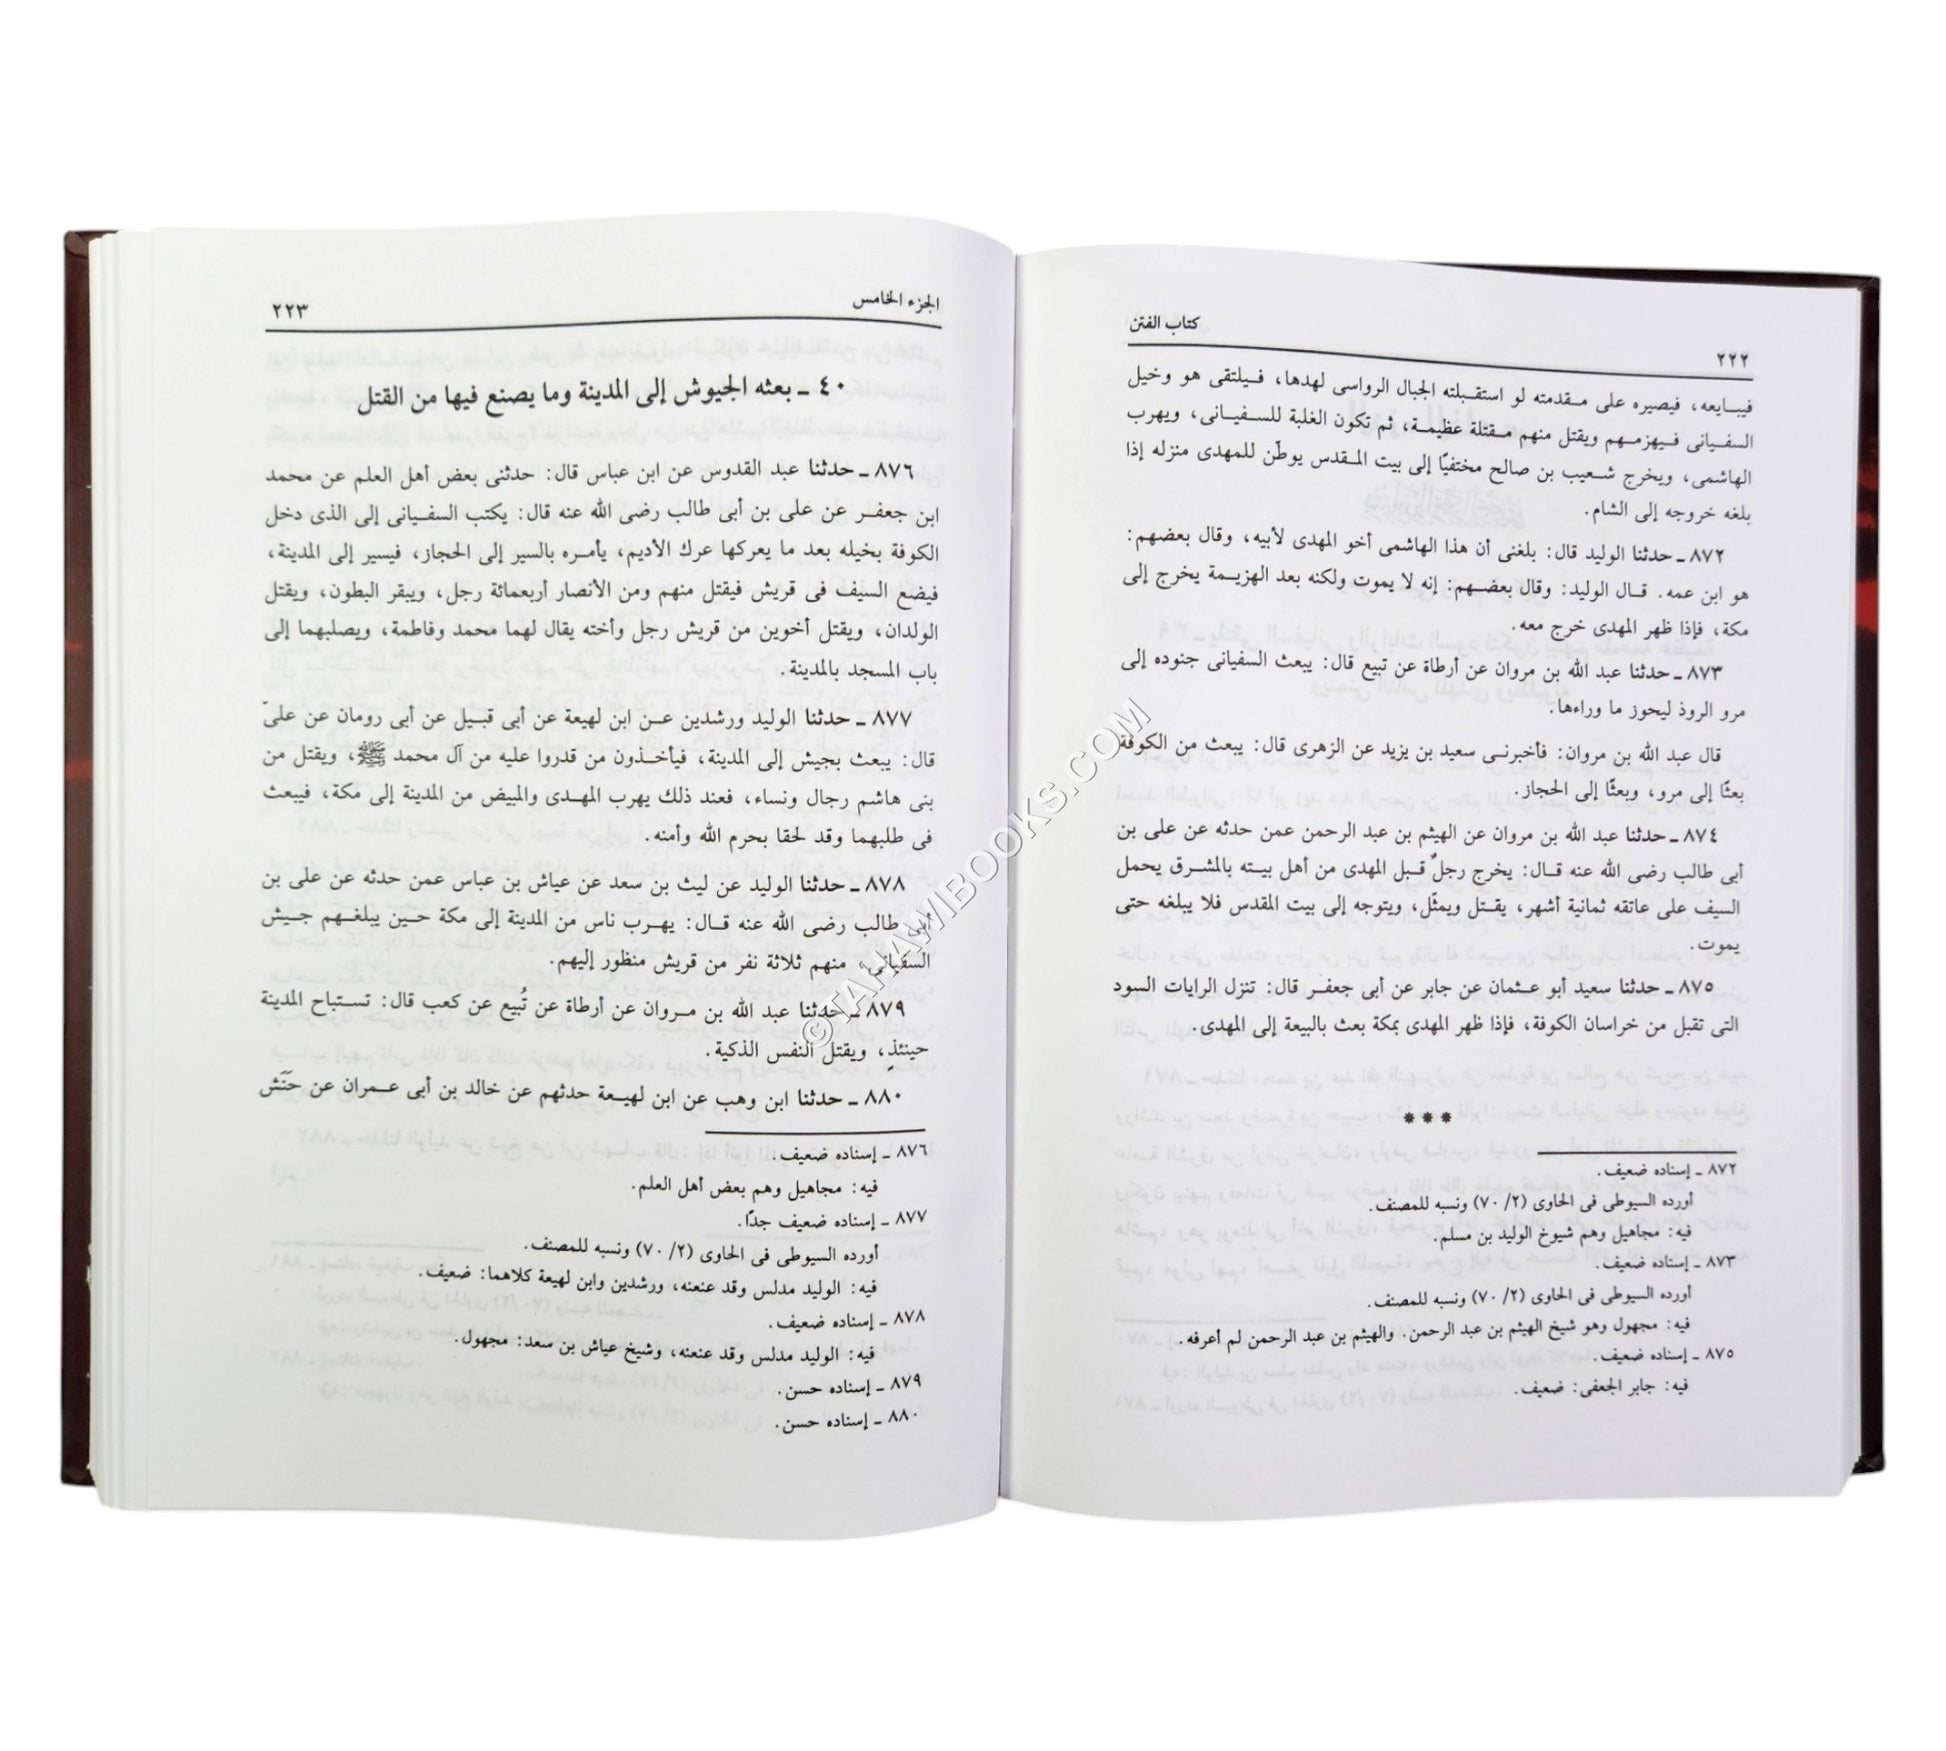 ٢٢٢
كتاب الفتن
فيبايعه، فيصيره على مقدمته لو استقبلته الجبال الرواسى لهدها، فيلتقى هو وخيل
السفيانى فيهزمهم ويقتل منهم مقتلة عظيمة، ثم تكون الغلبة للسفيانى، ويهرب
الهاشمى، ويخرج شعيب بن صالح مختفيًا إلى بيت المقدس يوطّن للمهدى منزله إذا
بلغه خروجه إلى الشام.
٨٧٢ ـ حدثنا الوليد قال: بلغنى أن هذا الهاشمى أخو المهدى لأبيه، وقال بعضهم:
هو ابن عمه. قال الوليد: وقال بعضهم: إنه لا يموت ولكنه بعد الهزيمة يخرج إلى
مكة، فإذا ظهر المهدى خرج معه.
٨٧٣ ـ حدثنا عبد الله بن مروان عن أرطاة عن تبيع قال: يبعث السفيانى جنوده إلى
مرو الروذ ليحوز ما وراءها.
قال عبد الله بن مروان: فأخبرنى سعيد بن يزيد عن الزهرى قال: يبعث من الكوفة
بعثًا إلى مرو، وبعثًا إلى الحجاز.
٨٧٤ ـ حدثنا عبد الله بن مروان عن الهيثم بن عبد الرحمن عمن حدثه عن على بن
أبى طالب رضى الله عنه قال: يخرج رجلٌ قبل المهدى من أهل بيته بالمشرق يحمل
السيف على عاتقه ثمانية أشهر، يقتل ويمثّل، ويتوجه إلى بيت المقدس فلا يبلغه حتى
يموت.
٨٧٥ ـ حدثنا سعيد أبو عثمان عن جابر عن أبى جعفر قال: تنزل الرايات السود
التى تقبل من خراسان الكوفة، فإذا ظهر المهدى بمكة بعث بالبيعة إلى المهدى.
* * *
٨٧٢ ـ إسناده ضعيف.
أورده السيوطى فى الحاوى (٢/ ٧٠) ونسبه للمصنف.
فيه: مجاهيل وهم شيوخ الوليد بن مسلم.
٨٧٣ ـ إسناده ضعيف.
أورده السيوطى فى الحاوى (٢/ ٧٠) ونسبه للمصنف.
فيه: مجهول وهو شيخ الهيثم بن عبد الرحمن. والهيثم بن عبد الرحمن لم أعرفه.
٨٧٥ ـ إسناده ضعيف.
فيه: جابر الجعفى: ضعيف.
الجزء الخامس
٢٢٣
٤٠ ـ بعثه الجيوش إلى المدينة وما يصنع فيها من القتل
٨٧٦ ـ حدثنا عبد القدوس عن ابن عباس قال: حدثنى بعض أهل العلم عن محمد
ابن جعفر عن على بن أبى طالب رضى الله عنه قال: يكتب السفيانى إلى الذى دخل
الكوفة بخيله بعد ما يعركها عرك الأديم، يأمره بالسير إلى الحجاز، فيسير إلى المدينة،
فيضع السيف فى قريش فيقتل منهم ومن الأنصار أربعمائة رجل، ويبقر البطون، ويقتل
الولدان، ويقتل أخوين من قريش رجل وأخته يقال لهما محمد وفاطمة، ويصلبهما إلى
باب المسجد بالمدينة.
٨٧٧ ـ حدثنا الوليد ورشدين عن ابن لهيعة عن أبى قبيل عن أبى رومان عن علىّ
قال: يبعث بجيش إلى المدينة، فيأخذون من قدروا عليه من آل محمد ﷺ، ويقتل من
بنى هاشم رجال ونساء، فعند ذلك يهرب المهدى والمبيض من المدينة إلى مكة، فيبعث
فى طلبهما وقد لحقا بحرم الله وأمنه.
٨٧٨ ـ حدثنا الوليد عن ليث بن سعد عن عياش بن عباس عمن حدثه عن على بن
أبى طالب رضى الله عنه قال: يهرب ناس من المدينة إلى مكة حين يبلغهم جيش
السفيانى، منهم ثلاثة نفر من قريش منظور إليهم.
٨٧٩ ـ حدثنا عبد الله بن مروان عن أرطاة عن تُبيع عن كعب قال: تستباح المدينة
حينئذٍ، ويقتل النفس الذكية.
٨٨٠ ـ حدثنا ابن وهب عن ابن لهيعة حدثهم عن خالد بن أبى عمران عن حَنَش
٨٧٦ ـ إسناده ضعيف.
فيه: مجاهيل وهم بعض أهل العلم.
٨٧٧ ـ إسناده ضعيف جدًا.
أورده السيوطى فى الحاوى (٢/ ٧٠) ونسبه للمصنف.
فيه: الوليد مدلس وقد عنعنه، ورشدين وابن لهيعة كلاهما: ضعيف.
٨٧٨ ـ إسناده ضعيف.
فيه: الوليد مدلس وقد عنعنه، وشيخ عياش بن سعد: مجهول.
٨٧٩ ـ إسناده حسن.
٨٨٠ ـ إسناده حسن.
© TAHAWIBOOKS.COM